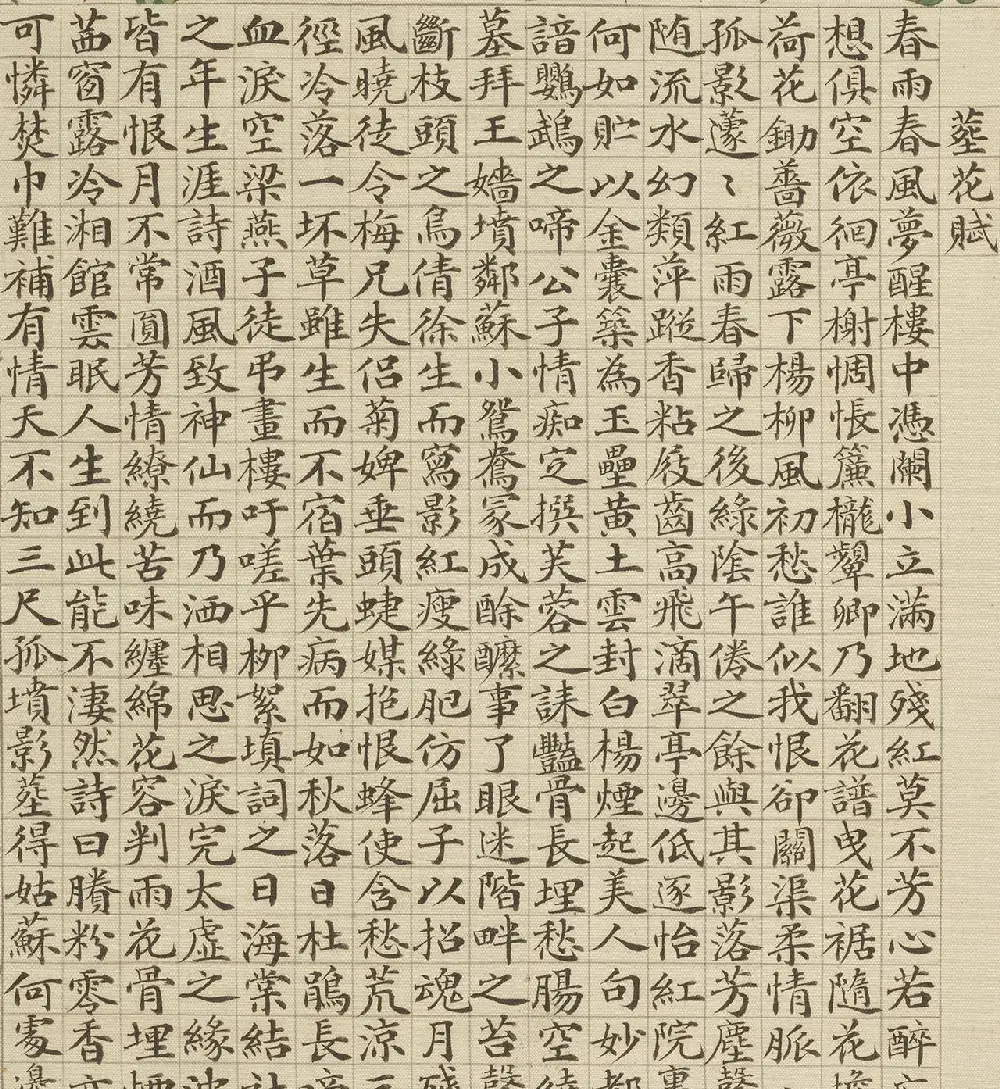 塟花賦
春雨春風夢醒樓中憑闌小立滿地殘紅莫不芳心若醉
想俱空依徊亭榭惆悵簾櫳顰卿乃翻花譜曳花裾隨花
荷花鋤薔薇露下楊柳風初愁誰似我恨卻關渠柔情脈
孤影蘧〻紅雨春歸之後綠陰午倦之餘與其影落芳塵
随流水幻類萍蹤香粘屐齒高飛滴翠亭邊低逐怡紅院
何如貯以金囊築為玉壘黃土雲封白楊煙起美人句妙
諳鸚鵡之啼公子情痴定撰芙蓉之誄豔骨長埋愁腸空
墓拜王嬙墳鄰蘇小鴛鴦冢成酴醾事了眼迷階畔之苔
斷枝頭之鳥倩徐生而寫影紅瘦綠肥仿屈子以招魂月
風曉徒令梅兄失侶菊婢垂頭蜨媒抱恨蜂使含愁荒涼
徑冷落一坏草雖生而不宿葉先病而如秋落日杜鵑長
血淚空梁燕子徒弔畫樓吁嗟乎柳絮填詞之日海棠結
之年生涯詩酒風致神仙而乃洒相思之淚完太虛之緣
皆有恨月不常圓芳情繚繞苦味纏綿花容判雨花骨埋
茜窗露冷湘館雲眠人生到此能不淒然詩曰賸粉零香
可憐焚巾難補有情天不知三尺孤墳影塟得姑蘇何處